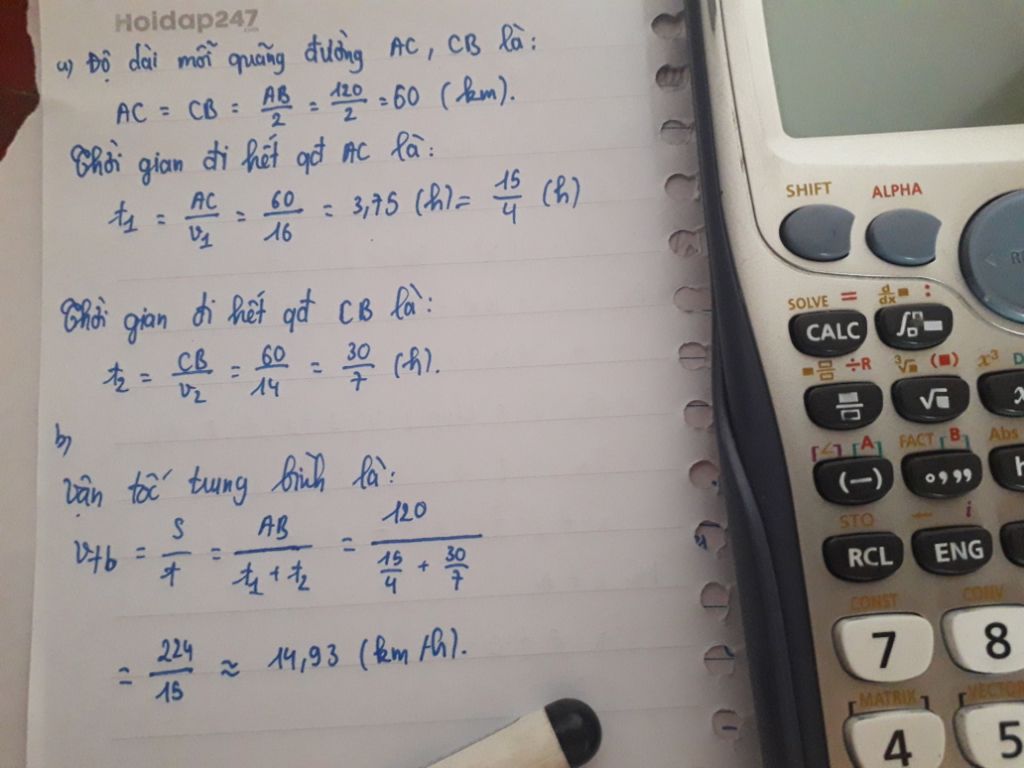 Hoidap247
a) Độ dài mỗi quãng đường AC, CB là:
AC = CB = AB/2 = 120/2 = 60 (km).
Thời gian đi hết qđ AC là:
t₁ = AC/v₁ = 60/16 = 3,75 (h) = 15/4 (h)
Thời gian đi hết qđ CB là:
t₂ = CB/v₂ = 60/14 = 30/7 (h).
b)
Vận tốc trung bình là:
vtb = S/t = AB/(t₁ + t₂) = 120/(15/4 + 30/7)
= 224/15 ≈ 14,93 (km/h).
SHIFT ALPHA
SOLVE = d/dx :
CALC
÷R ³√ (■) x³
√■
[∠] [A] FACT [B] Abs
(−) °,,,
STO ← i
RCL ENG
CONST CONV
7 8
MATRIX VECTOR
4 5